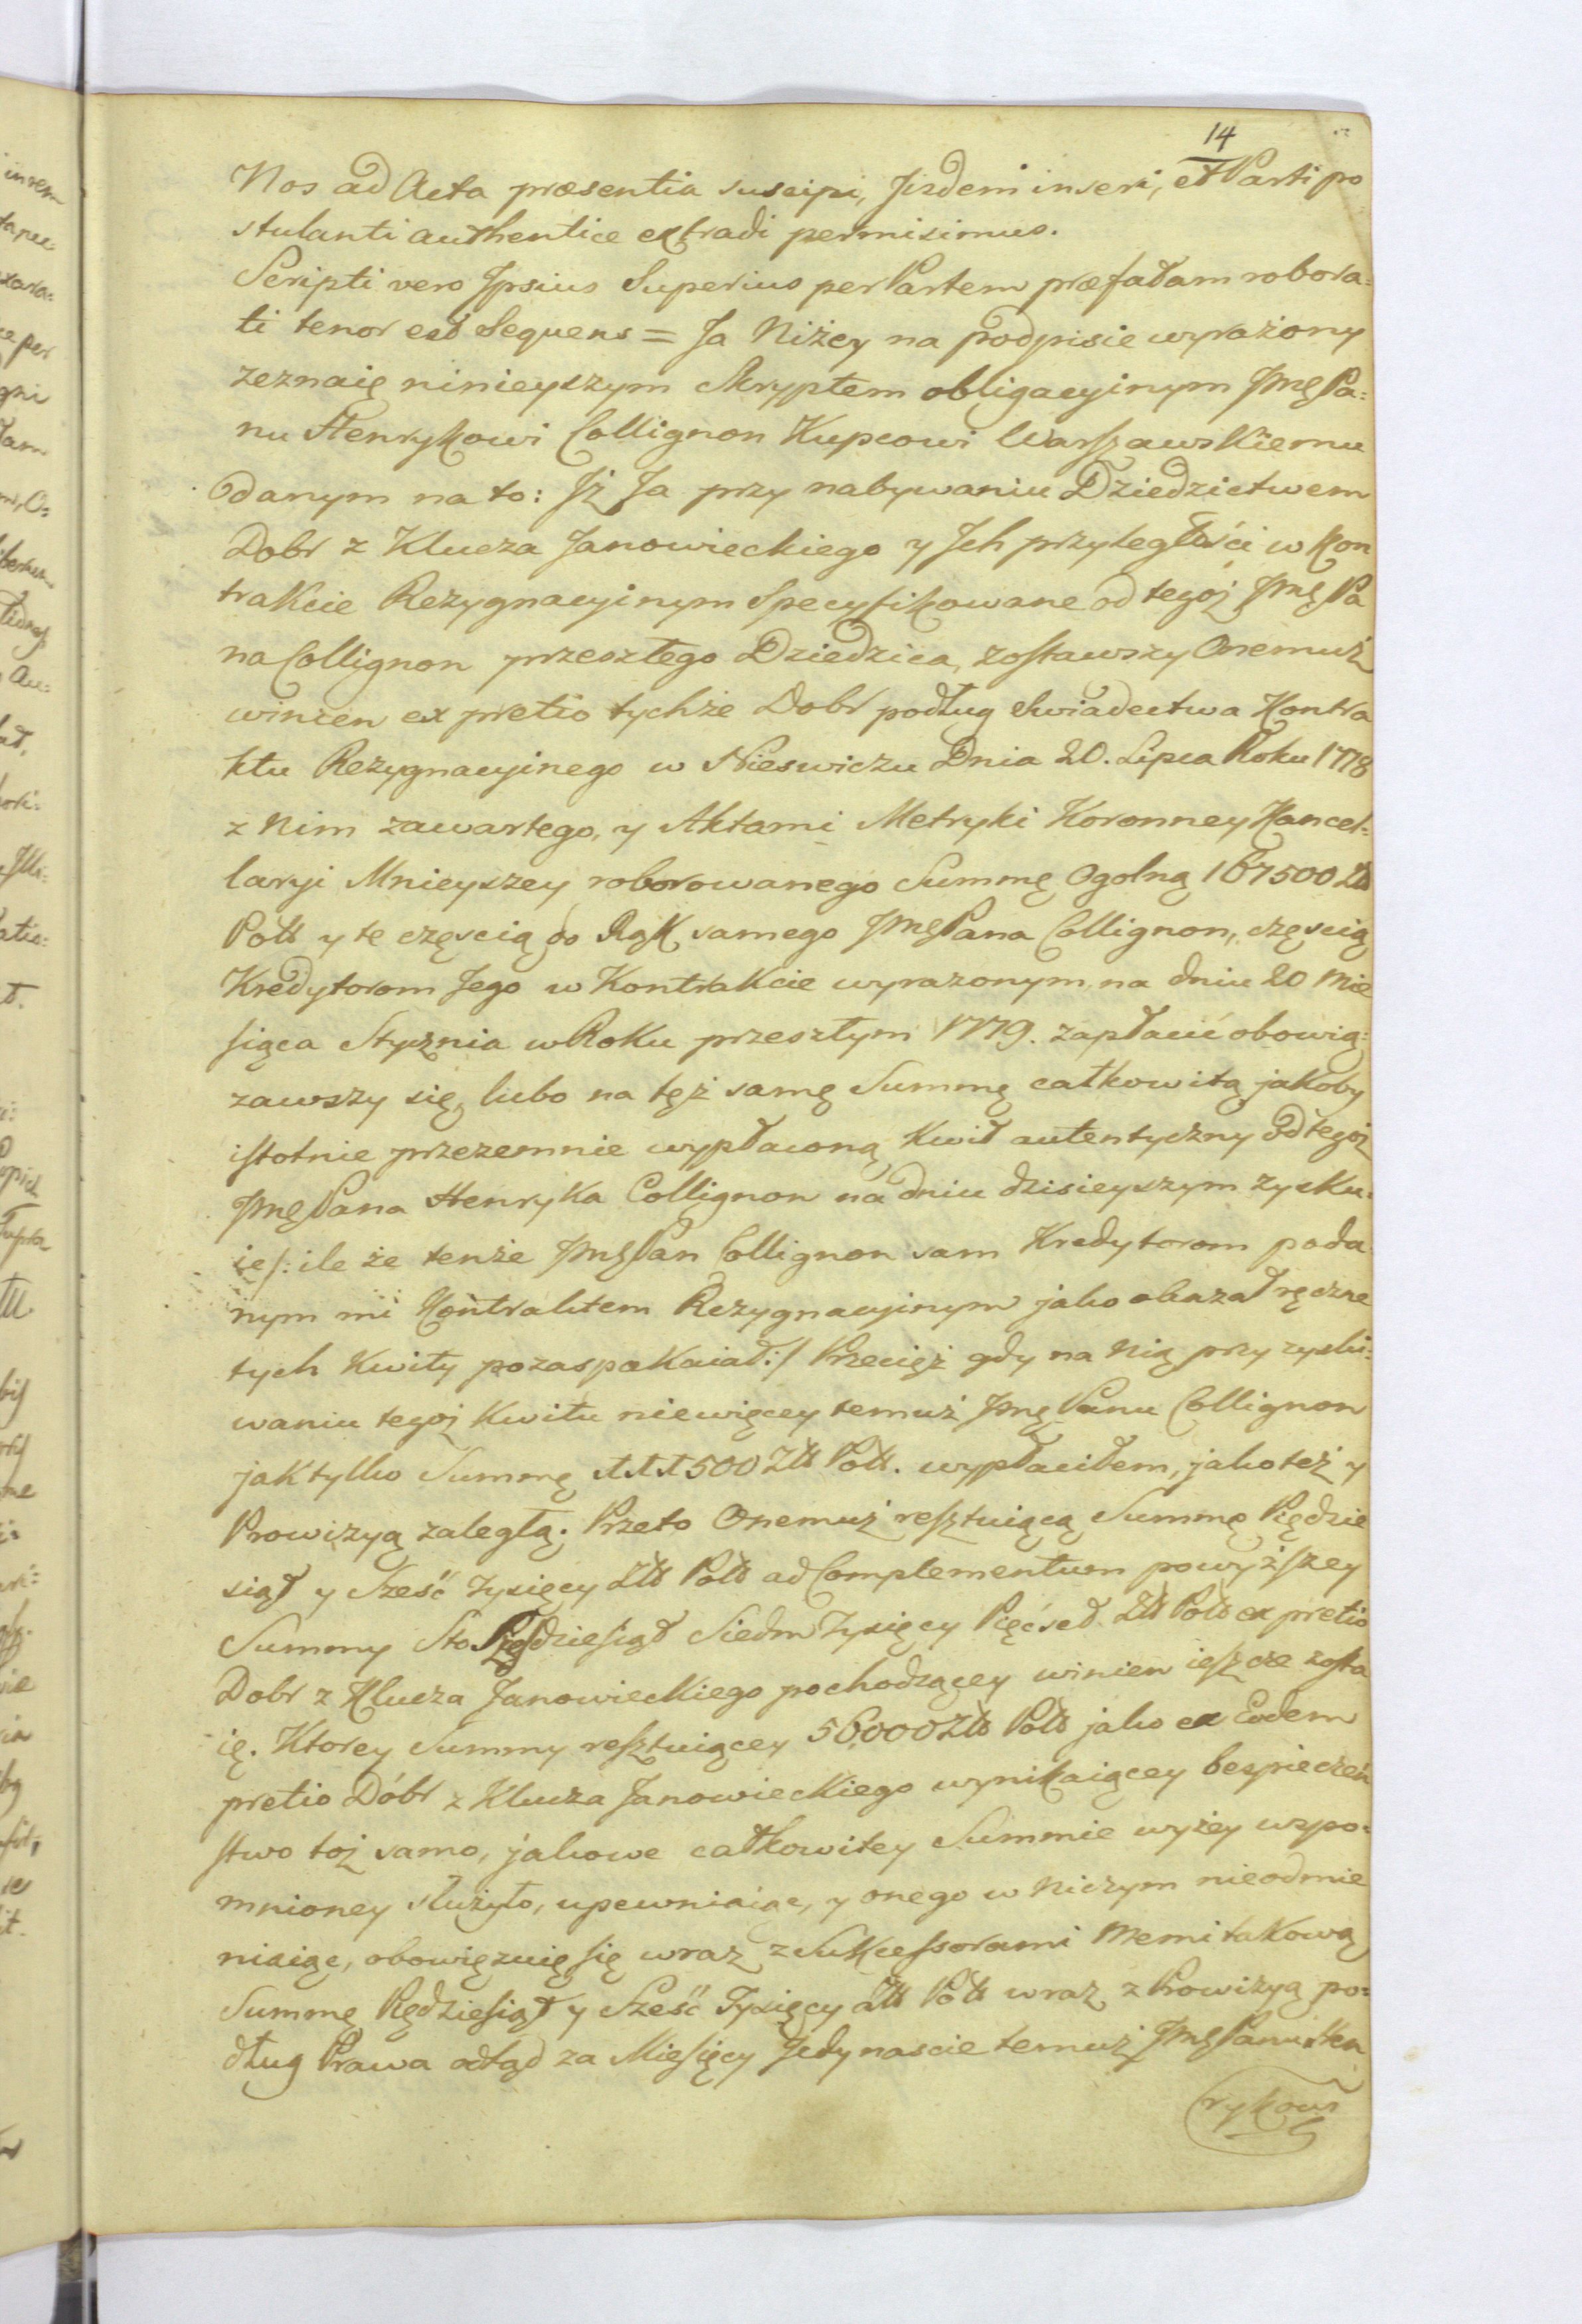 14
Nos ad Acta præsentia suscipi, Jisdem inseri, et Parti po
stulanti authentice extradi permisimus.
Scripti vero Jpsius Superius per Partem præfatam robora=
ti tenor est Sequens = Ja Niżey na podpisie wyrażony
zeznaię ninieyszym Skryptem obligacyinym Jmę Pa=
nu Henrykowi Collignon Kupcowi Warszawskiemu
danym na to: Jż Ja przy nabywaniu Dziedzictwem
Dobr z Klucza Janowieckiego y Jch przyległości w Kon
trakcie Rezygnacyinym Specyfikowane od tegoż Jmę Pa
na Collignon przeszłego Dziedzica, zostawszy Onemuż
winien ex pretio tychże Dobr podług Swiadectwa Kontra
ktu Rezygnacyinego w Nieswiczu Dnia 20. Lipca Roku 1778
z Nim zawartego, y Aktami Metryki Koronney Kancel=
laryi Mnieyszey roborowanego Summę Ogolną 167500 Złł
Poll y te częscią do Rąk samego Jmę Pana Collignon, częscią
Kredytorom Jego w Kontrakcie wyrazonym, na dniu 20 Mie
siąca Stycznia w Roku przeszłym 1779. zapłacić obowią=
zawszy się, lubo na tęż samę Summę całkowitą jakoby
istotnie przezemnie wypłaconą Kwit autentyczny od tegoż
Jmę Pana Henryka Collignon na dniu dzisieyszym zysku=
ię /: ile że tenże Jmę Pan Collignon sam Kredytorom poda
nym mi Kontraktem Rezygnacyinym jako okazał ręczne
tych Kwity pozaspakaiał :/ Przecięż gdy na Nią przy zyski=
waniu tegoż Kwitu niewięcey temuż Jmę Panu Collignon
jak tylko Summę 111500 Złł Poll. wypłaciłem, jako też y
Prowizyą zaległą. Przeto Onemuż resztuiącą Summę Pięćdzie
siąt y Sześć tysięcy Złł Poll ad Complementum powyższey
Summy Sto Sześdziesiąt Siedm Tysięcy Pięćset Złł Poll ex pretio
Dobr z Klucza Janowieckiego pochodzącey winien ieszcze zosta
ię. Ktorey Summy resztuiącey 56,000 Złł Poll jako ex Eodem
pretio Dóbr z Klucza Janowieckiego wynikaiącey bespieczeń
stwo toż samo, jakowe całkowitey Summie wyżey wspo=
mnioney służyło, upewniaiąc, y onego w Niczym nieodmie
niaiąc, obowięzuię się wraz z Sukcessorami Memi takową
Summę Pięćdziesiąt y Sześć Tysięcy Złł Poll wraz z Prowizyą po=
dług Prawa odtąd za Miesięcy Jedynascie temuż Jmę Panu Hen
rykowi